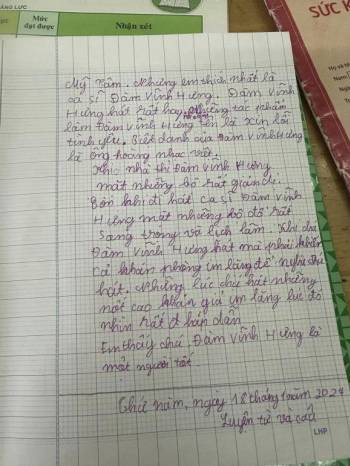 NĂNG LỰC
Mức đạt được
Nhận xét
SỨC K
Họ và t
Mỹ Tâm. Nhưng em thích nhất là
ca sĩ Đàm Vĩnh Hưng. Đàm Vĩnh
Hưng hát rất hay, những tác phẩm
làm Đàm Vĩnh Hưng lên là xin lỗi
tình yêu. Biệt danh của Đàm Vĩnh Hưng
là ông hoàng nhạc việt.
nhà thì Đàm Vĩnh Hưng
mặt những bộ rất giản dị.
Còn khi đi hát ca sĩ Đàm Vĩnh
Hưng mặt những bộ đồ rất
sang trọng và lịch lãm. Khi chú
Đàm Vĩnh Hưng hát mà phải
cả khán phòng im lặng để nghe chú
hát. Những lúc chú hát những
nốt cao khán giả im lặng lúc đó
nhìn rất hấp dẫn
Em thấy chú Đàm Vĩnh Hưng là
một người tốt.
Thứ năm, ngày 18 tháng 1 năm 2024
Luyện từ và câu
LHP